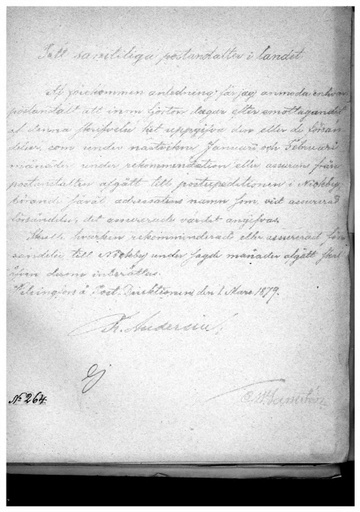 Till samtliga postanstalter i landet
Af förekommen anledning får jag anmoda enhvar
postanstalt att inom fjorton dagar efter emottagandet
af denna skrifvelse hit uppgifva den eller de försän-
delser, som under nästvikne Januari och Februari
månader under rekommendation eller assurans från
postanstalten afgått till postexpeditionen i Nickby,
adressatens namn
försändelser, det assurerade värdet angifvas.
Skulle hvarken rekommenderad eller assurerad för-
sändelse till Nickby under sagde månader afgått skall
äfven derom inberättas.
Helsingfors å Post-Direktionen den 1 Mars 1879.
Ej
No 264.